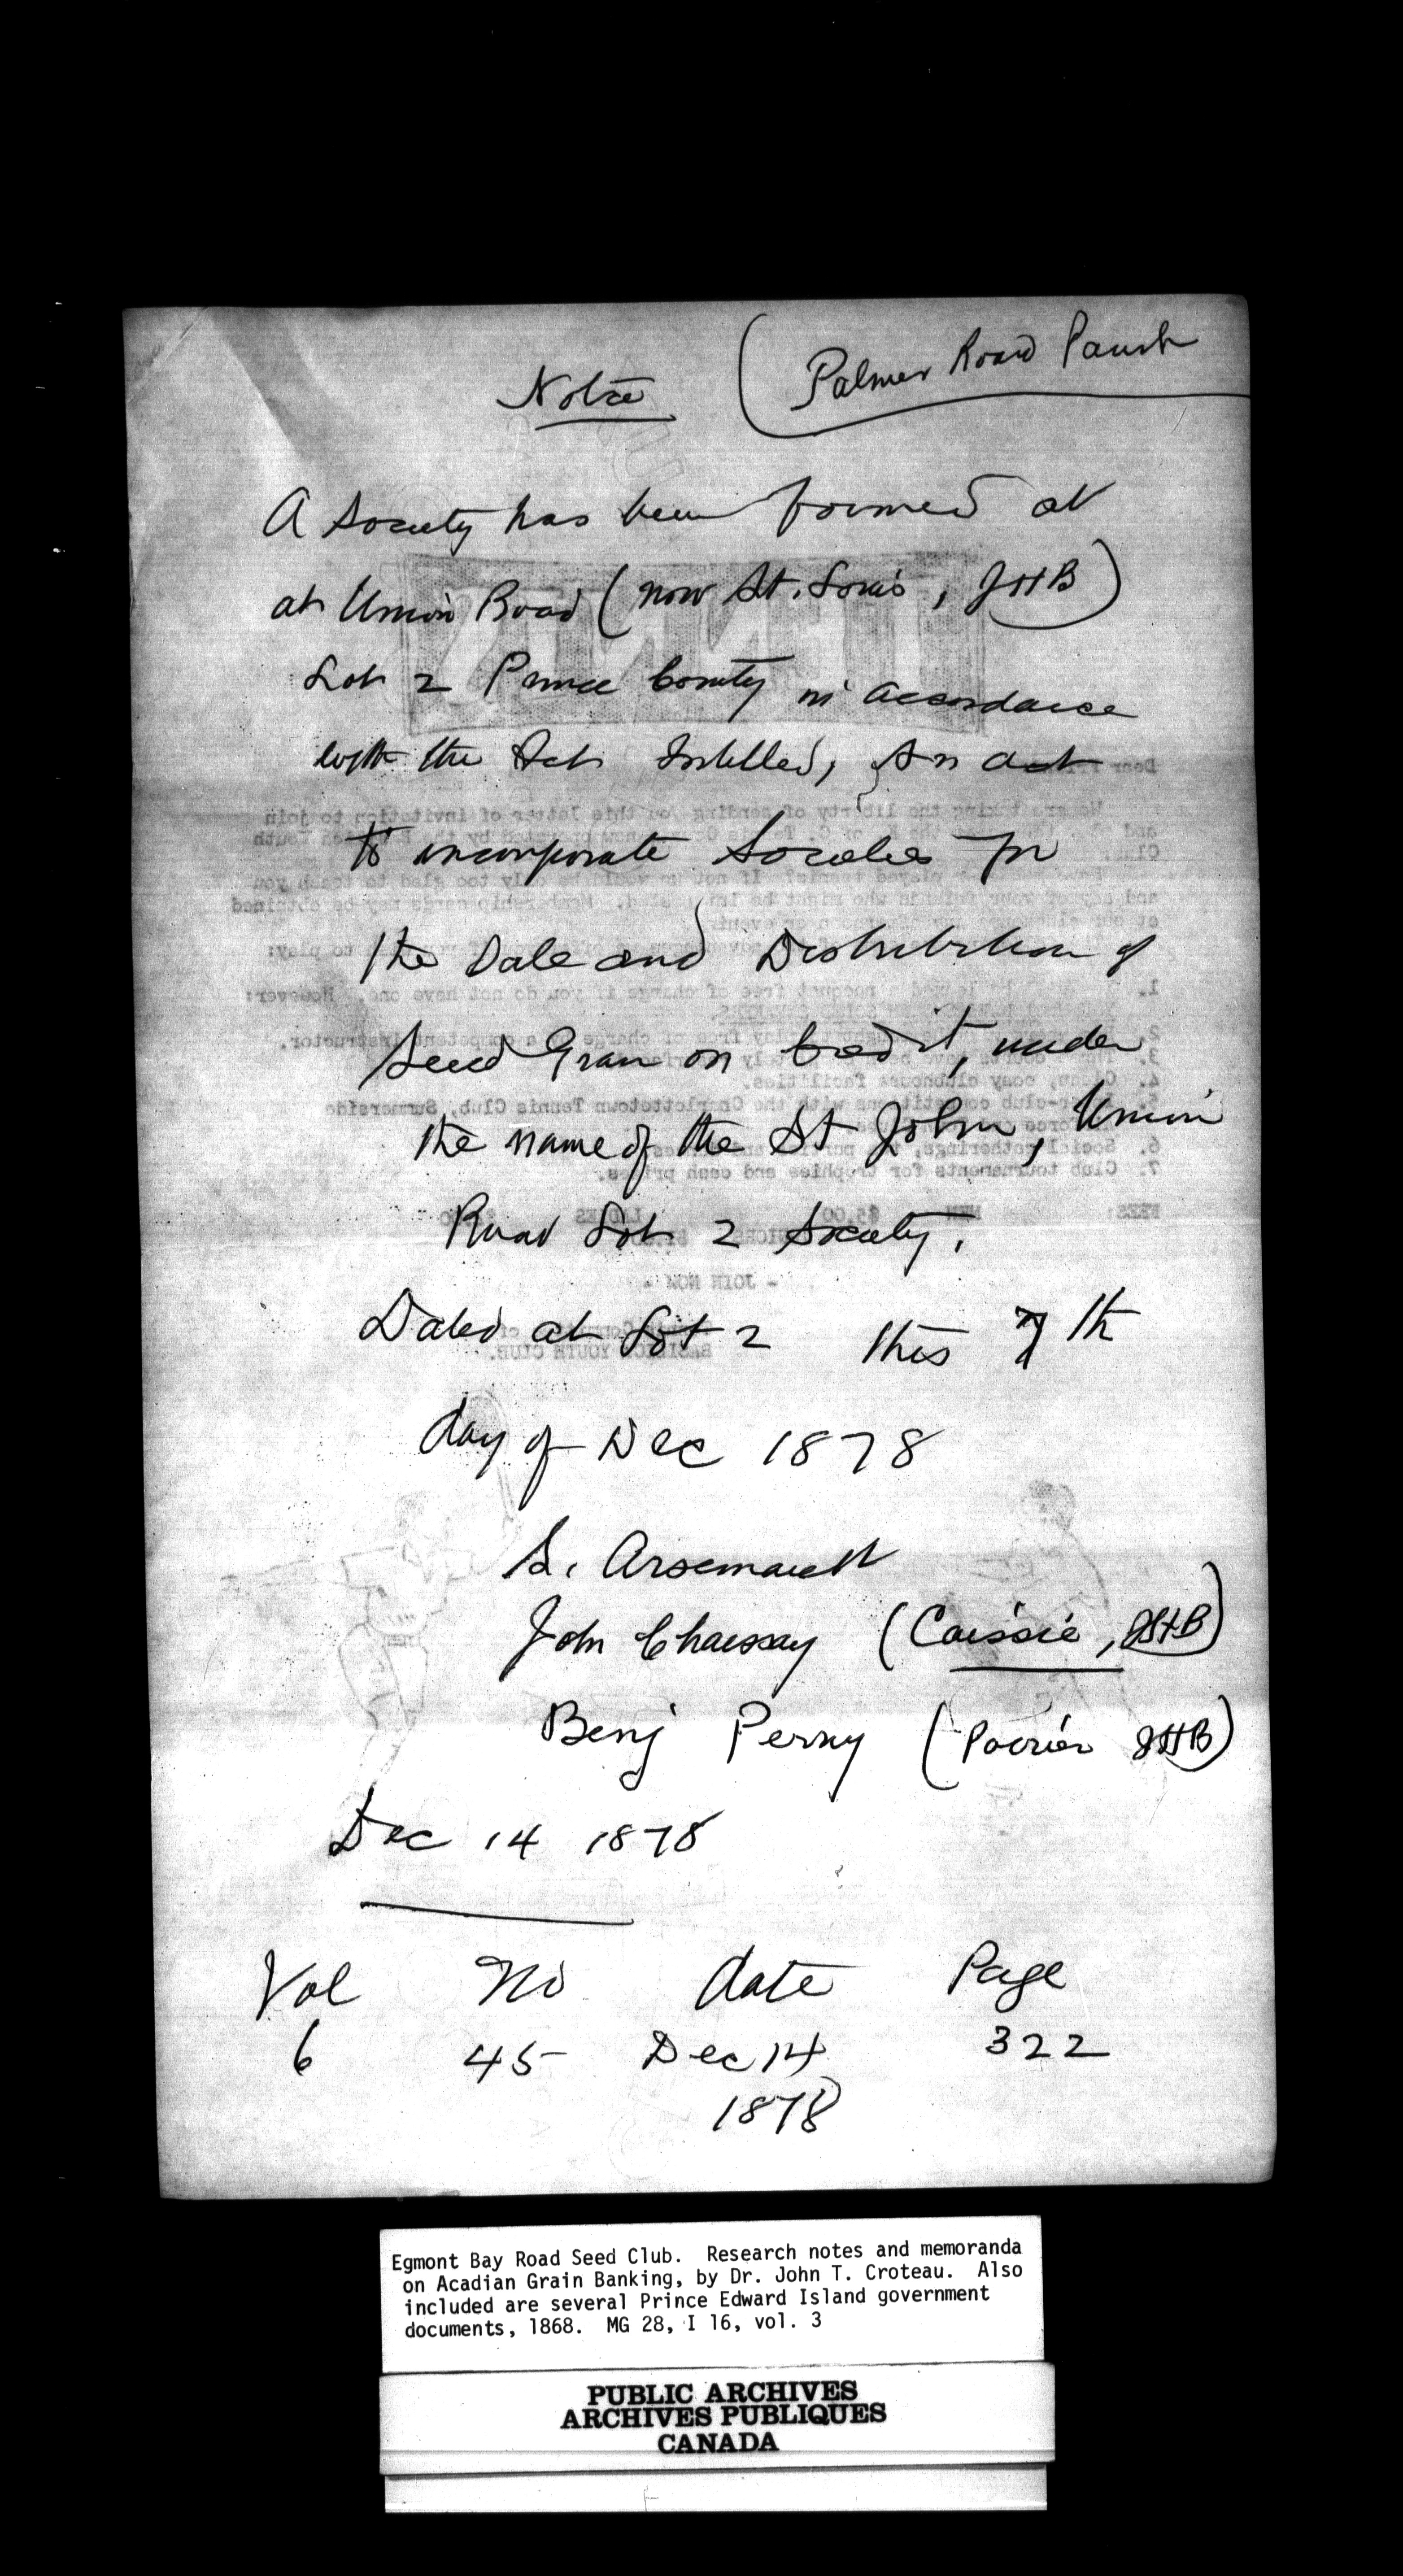 Notice
(Palmer Road Parish
A Society has been formed at
at Union Road (now St. Louis, JHB)
Lot 2 Prince County in accordance
with the Act Intitled, An act
to incorporate Societies for
the Sale and Distribution of
Seed Grain on Credit, under
the name of the St John, Union
Road Lot 2 Society.
Dated at Lot 2 this 7th
day of Dec 1878
S. Arsenault
John Chaissay (Caissie, JHB)
Benj Perry (Poirier JHB)
Dec 14 1878
Vol No date Page
6 45 Dec 14 322
1878
Egmont Bay Road Seed Club. Research notes and memoranda
on Acadian Grain Banking, by Dr. John T. Croteau. Also
included are several Prince Edward Island government
documents, 1868. MG 28, I 16, vol. 3
PUBLIC ARCHIVES
ARCHIVES PUBLIQUES
CANADA